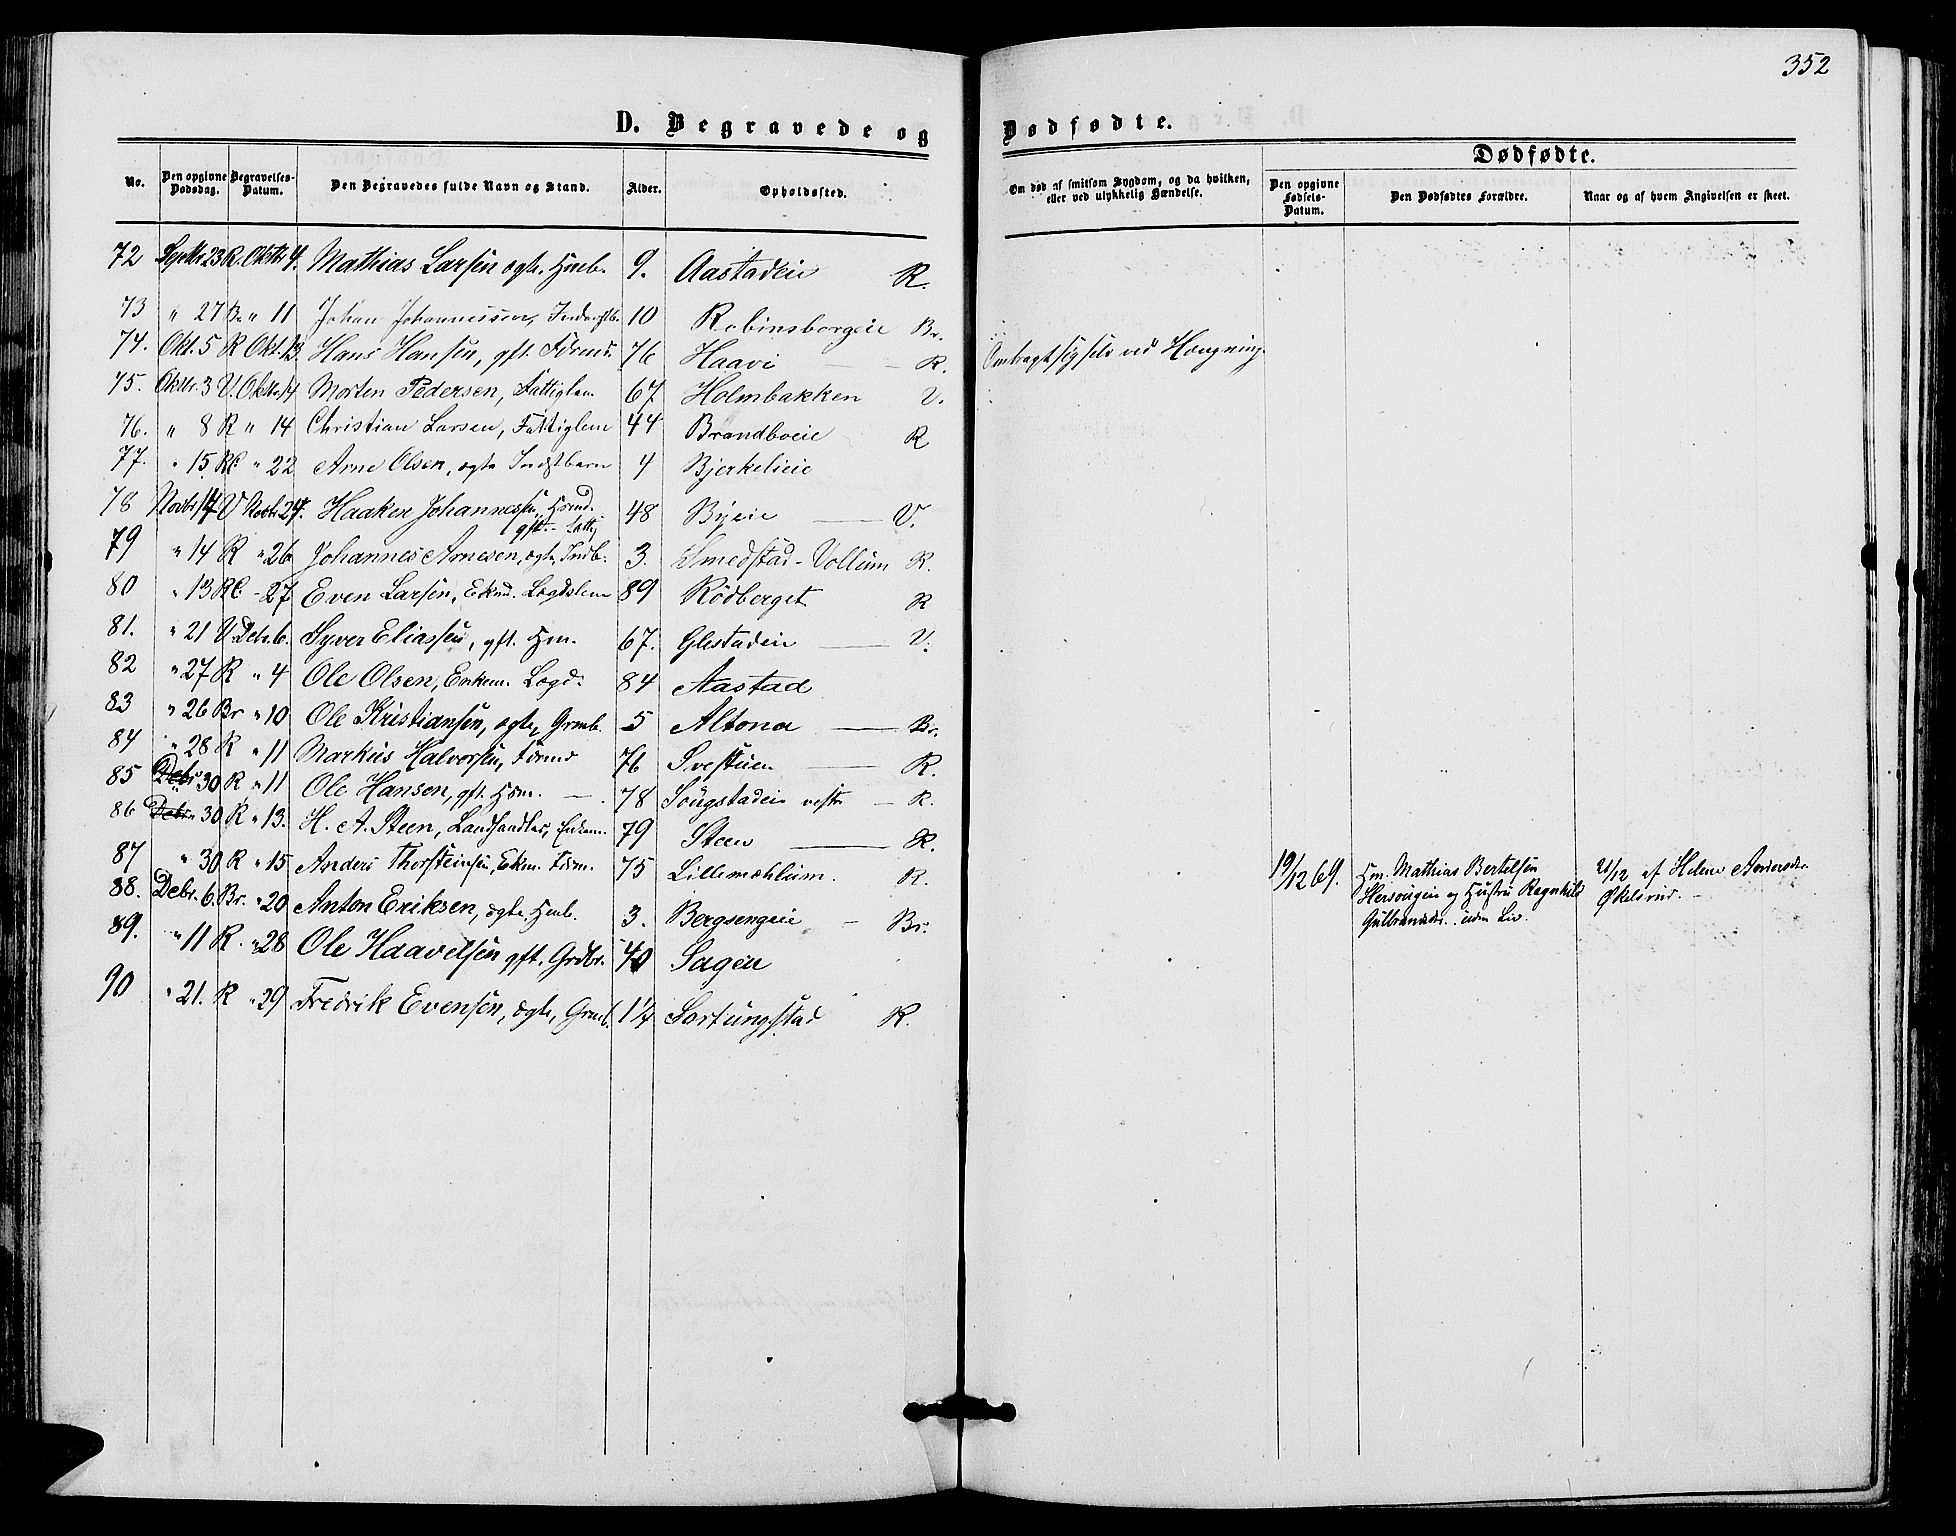 352
D. Begravede og Dødfødte.
No. Den opgivne Dødsdag. Begravelses-Datum. Den Begravedes fulde Navn og Stand. Alder. Opholdssted. Om død af smitsom Sygdom, og da hvilken, eller ved ulykkelig Hændelse. Dødfødte. Den opgivne Fødsels-Datum. Den Dødfødtes Forældre. Naar og af hvem Angivelsen er skeet.
72 Septbr 23 R. Oktbr 4. Mathias Larsen ægte. Hmb. 9. Aastadeie R.
73 " 27 Br " 11 Johan Johannessen, 10 Robinsborgeie Br.
74. Okt. 5 R Okt. 13 Hans Hansen, gft. Førmd. 76 Haavi — R. Ombragt sig selv ved Hængning.
75. Oktbr 3 V. Oktbr 14 Morten Pedersen, Fattiglem 67 Holmbakken V.
76. " 8 R " 14 Christian Larsen, Fattiglem 44 Brandboeie R
77. " 15 R " 22 Arne Olsen, ægte Indstbarn 4 Bjerkelieie
78 Novbr 14 V Novbr 24. Haaken Johannessen, Hsmd. gft. — Fattig 48 Byeie — V.
79 " 14 R " 26 Johannes Arnesen, ægte, Indb. 3. Smedstad-Vollum R.
80 " 13 R - 27 Even Larsen, Ekmd. Lægdslem 89 Rödberget R
81. " 21 V. Debr. 6. Syver Eliassen, gft. Hm. 67. Glestadeie — V.
82 " 27 R " 4 Ole Olsen, Enkem. Lægd: 84 Aastad
83 " 26 Br " 10 Ole Kristiansen, ægte, Grmb. 5 Altona — Br.
84 " 28 R " 11 Markus Halvorsen, Førmd 76 Svestuen — R.
85 " 30 R " 11 Ole Hansen, gft. Hsm. — 78 Söugstadeie vestre — R.
86 " 30 R " 13. H. A. Steen, Landhandler, Enkem. 79 Steen — R.
87 " 30 R " 15 Anders Thorsteinsen, Ekm. Førm. 75 Lillemæhlum. R.
88. Debr. 6. Br. " 20 Anton Eriksen, ægte. Hmb. 3. Bergsengeie — Br.
19/12 69. Hm. Mathias Bertelsen
Hersougeie og Hustru Ragnhild
Gulbrandsdr. uden Liv.
21/12 af Helene Andersdr.
Økelsrud. —
89. " 11 R. " 28 Ole Haavelsen gft. Grdbr. 40 Sagen
90 " 21. R " 29 Fredrik Evensen, ægte, Grmb. 1¼ Sortungstad R.